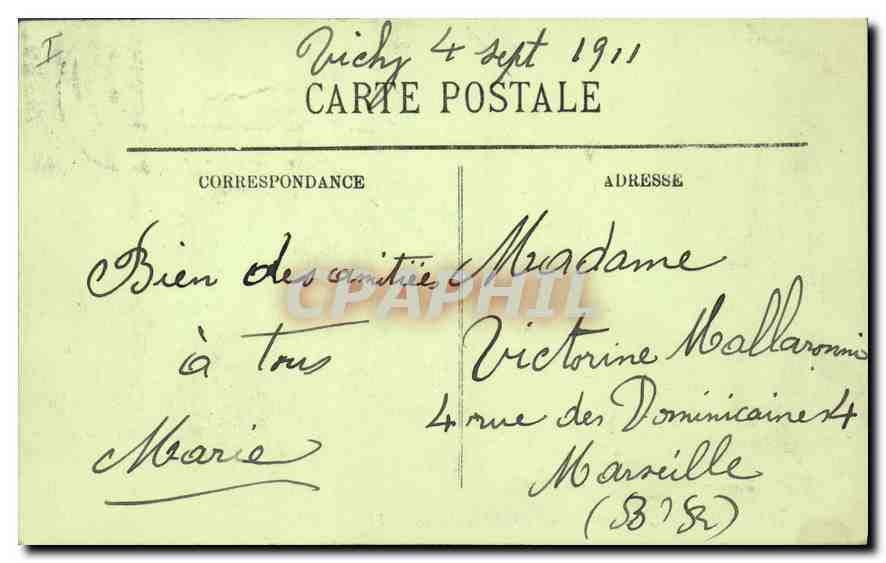 I
Vichy 4 sept 1911
CARTE POSTALE
CORRESPONDANCE
Bien des amitiées
à tous
Marie
ADRESSE
Madame
Victorine Mallaronni
4 rue des Dominicaines 4
Marseille
(B' R)
CPAPHIL